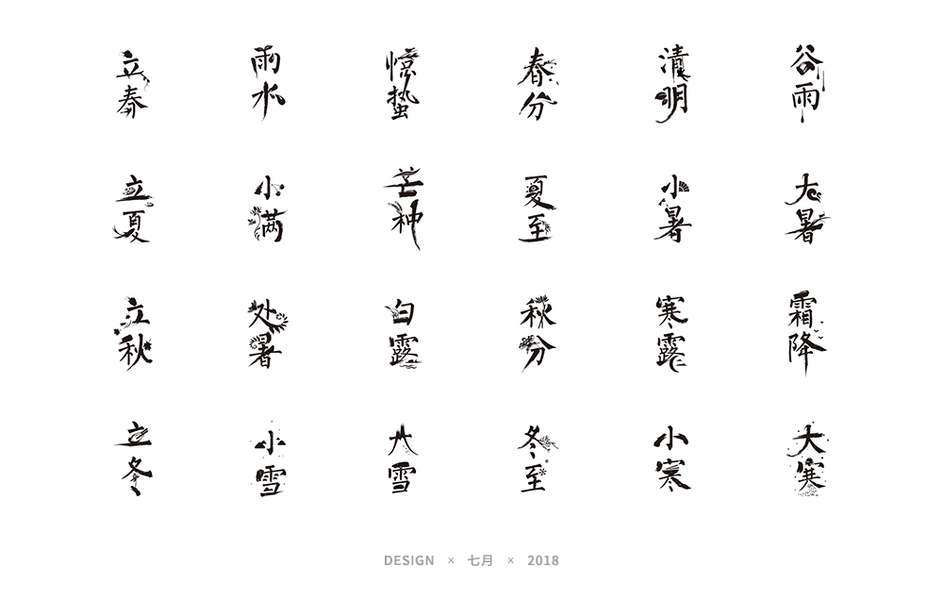 立春 雨水 惊蛰 春分 清明 谷雨
立夏 小满 芒种 夏至 小暑 大暑
立秋 处暑 白露 秋分 寒露 霜降
立冬 小雪 大雪 冬至 小寒 大寒
DESIGN × 七月 × 2018